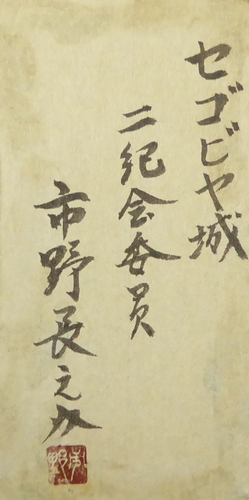 セゴビヤ城
二紀会委員
市野長之介